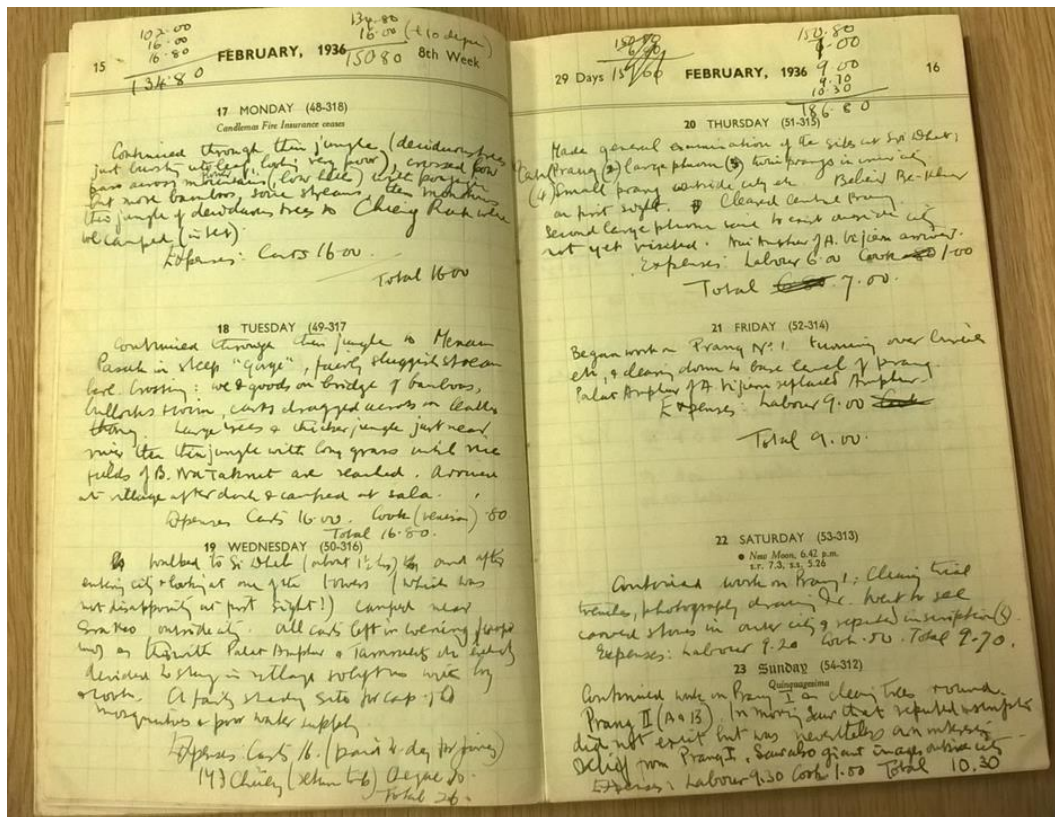 102.00
16.00
16.80
134.80
134.80
16.00 (+10
150.80
15 FEBRUARY, 1936 8th Week
17 MONDAY (48-318)
Candlemas Fire Insurance ceases
Continued through thin jungle (deciduous trees
just bursting into leaf, looking very poor), crossed low
pass across mountains, (low hills) with
but more bamboo, some streams, then
thin jungle of deciduous trees to Chieng Rak where
we camped
Expenses: Carts 16.00.
Total 16.00
18 TUESDAY (49-317
Continued through thin jungle to Menam
Pasak in steep "gorge", fairly sluggish stream
Crossing: we & goods on bridge of bamboos,
bullocks swim, carts dragged across on
thong. Large trees & thicker jungle just near
river then thin jungle with long grass until rice
fields of B. are reached. Arrive
at village after dark & camped at sala.
Expenses Carts 16.00. Cook (venison) .80
Total 16.80.
19 WEDNESDAY (50-316)
walked to Si (about 1½ hrs) and after
entering city & looking at one of the towers (which was
not disappointing at first sight!) camped near
Sra Keo outside city. All carts left in evening
as with Palat Amphur &
decided to sleep in village with boy
& cook. A fairly shady site for camp, tho
mosquitoes & poor water supply.
Expenses: Carts 16. (paid 4 day for
(return trip)
Total 26.
150.80
7.00
9.00
9.70
10.30
186.80
29 Days FEBRUARY, 1936 16
20 THURSDAY (51-315)
Made general examination of the sites at Si
Prang (2) large (3) twin prangs in inner city
(4) Small prang outside city etc.
on first sight. Cleared Central Prang.
Second large said to exist outside city
not yet visited. Nai Amphur of A. Vijien arrives.
Expenses: Labour 6.00 Cook 1.00
Total 7.00.
21 FRIDAY (52-314)
Began work on Prang No. 1. turning over
etc, & clearing down to base level of prang.
Palat Amphur of A. Vijien replaced Amphur.
Expenses: Labour 9.00
Total 9.00.
22 SATURDAY (53-313)
● New Moon, 6.42 p.m.
s.r. 7.3, s.s. 5.26
Continued work on Prang I; Clearing trial
trenches, photography drawing &c. Went to see
carved stones in outer city & reputed inscription(s)
Expenses: Labour 9.20 Cook .50. Total 9.70.
23 Sunday (54-312)
Quinquagesima
Continued work on Prang I & clearing trees round
Prang II (A & B). In morning saw that reputed inscription
did not exist but was nevertheless an interesting
relief from Prang I. Saw also giant images outside city
Expenses: Labour 9.30 Cook 1.00 Total 10.30